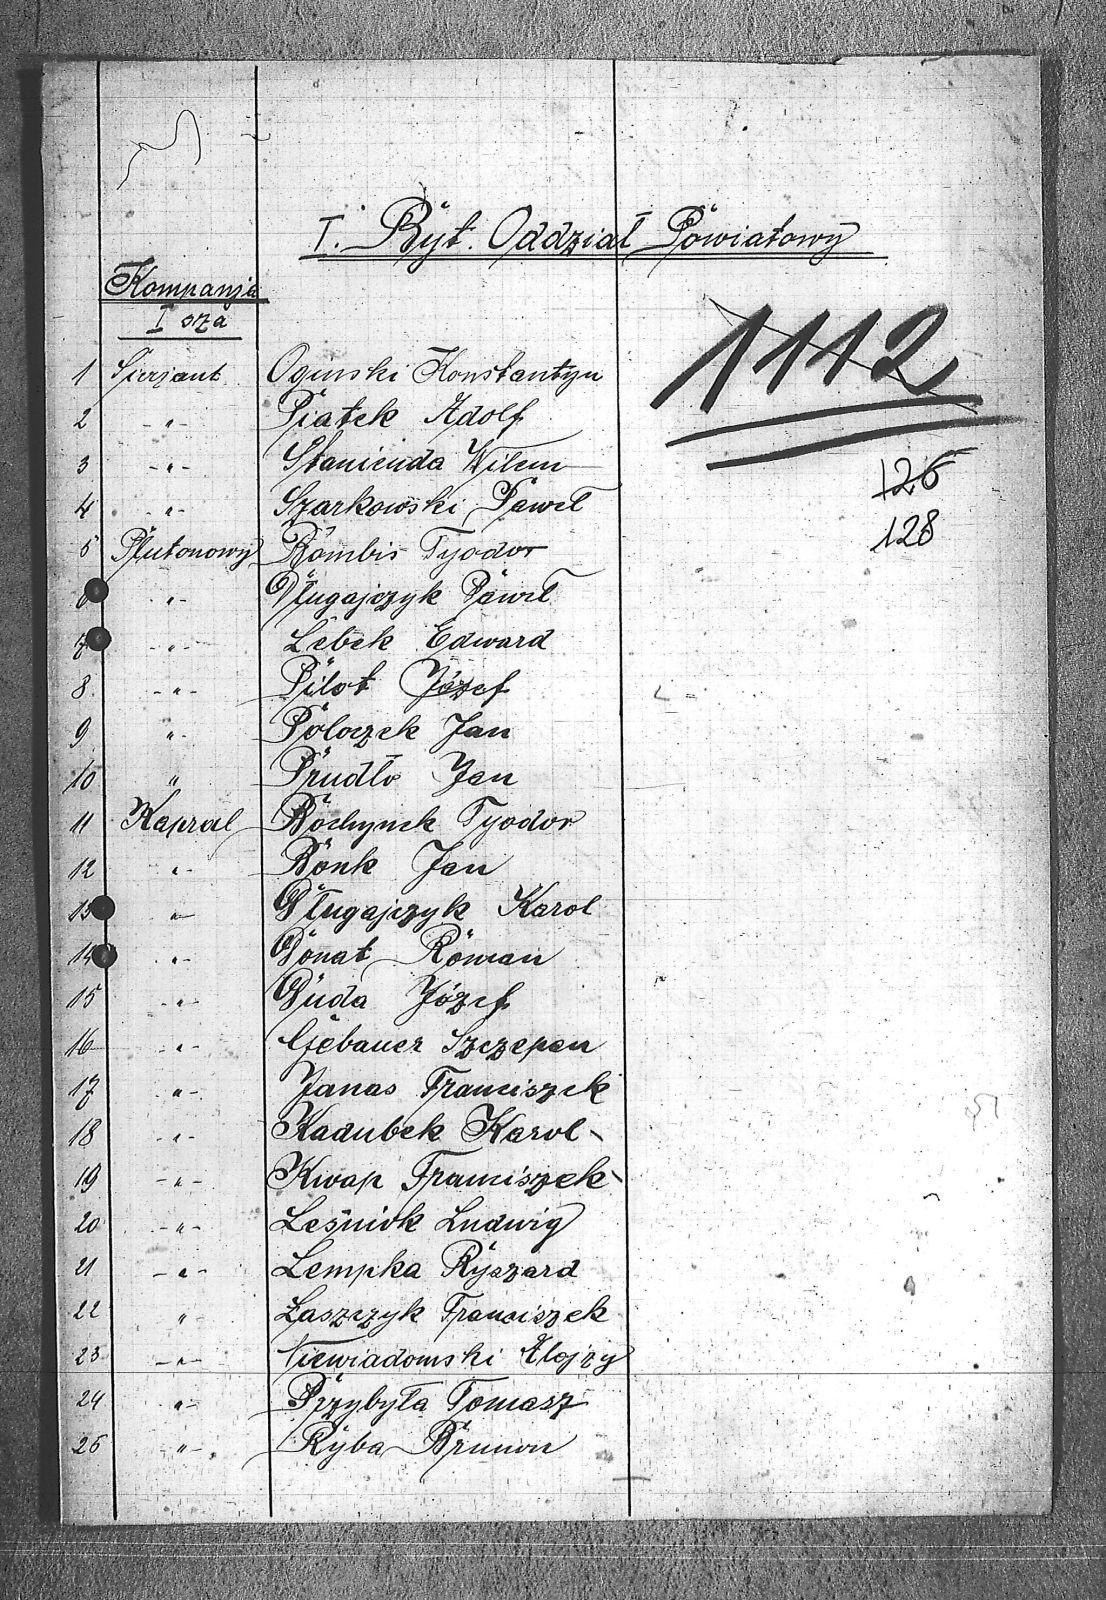 I. Byt. Oddział Powiatowy
Kompanja
I sza
1112
126
128
1 Sierjant Oginski Konstantyn
2 -"- Piatek Adolf
3 -"- Stanienda Wilem
4 -"- Szarkowski Paweł
5 Plutonowy Bombis Tyodor
6 -"- Długajczyk Paweł
7 -"- Lebek Edward
8. -"- Pilot Józef
9 -"- Poloczek Jan
10 " Prudło Jan
11 Kapral Bochynek Tyodor
12 -"- Bonk Jan
13 -"- Długajczyk Karol
14 -"- Donat Roman
15 -"- Duda Józef
16 -"- Gebauer Szczepan
17 -"- Janas Franciszek
18 -"- Kadubek Karol
19 -"- Kwap Franciszek
20 -"- Leśniok Ludwig
21 -"- Lempka Ryszard
22 " Łaszczyk Franciszek
23 -"- Niewiadomski Alojzy
24 -"- Przybyła Tomasz
25 -"- Ryba Brunon